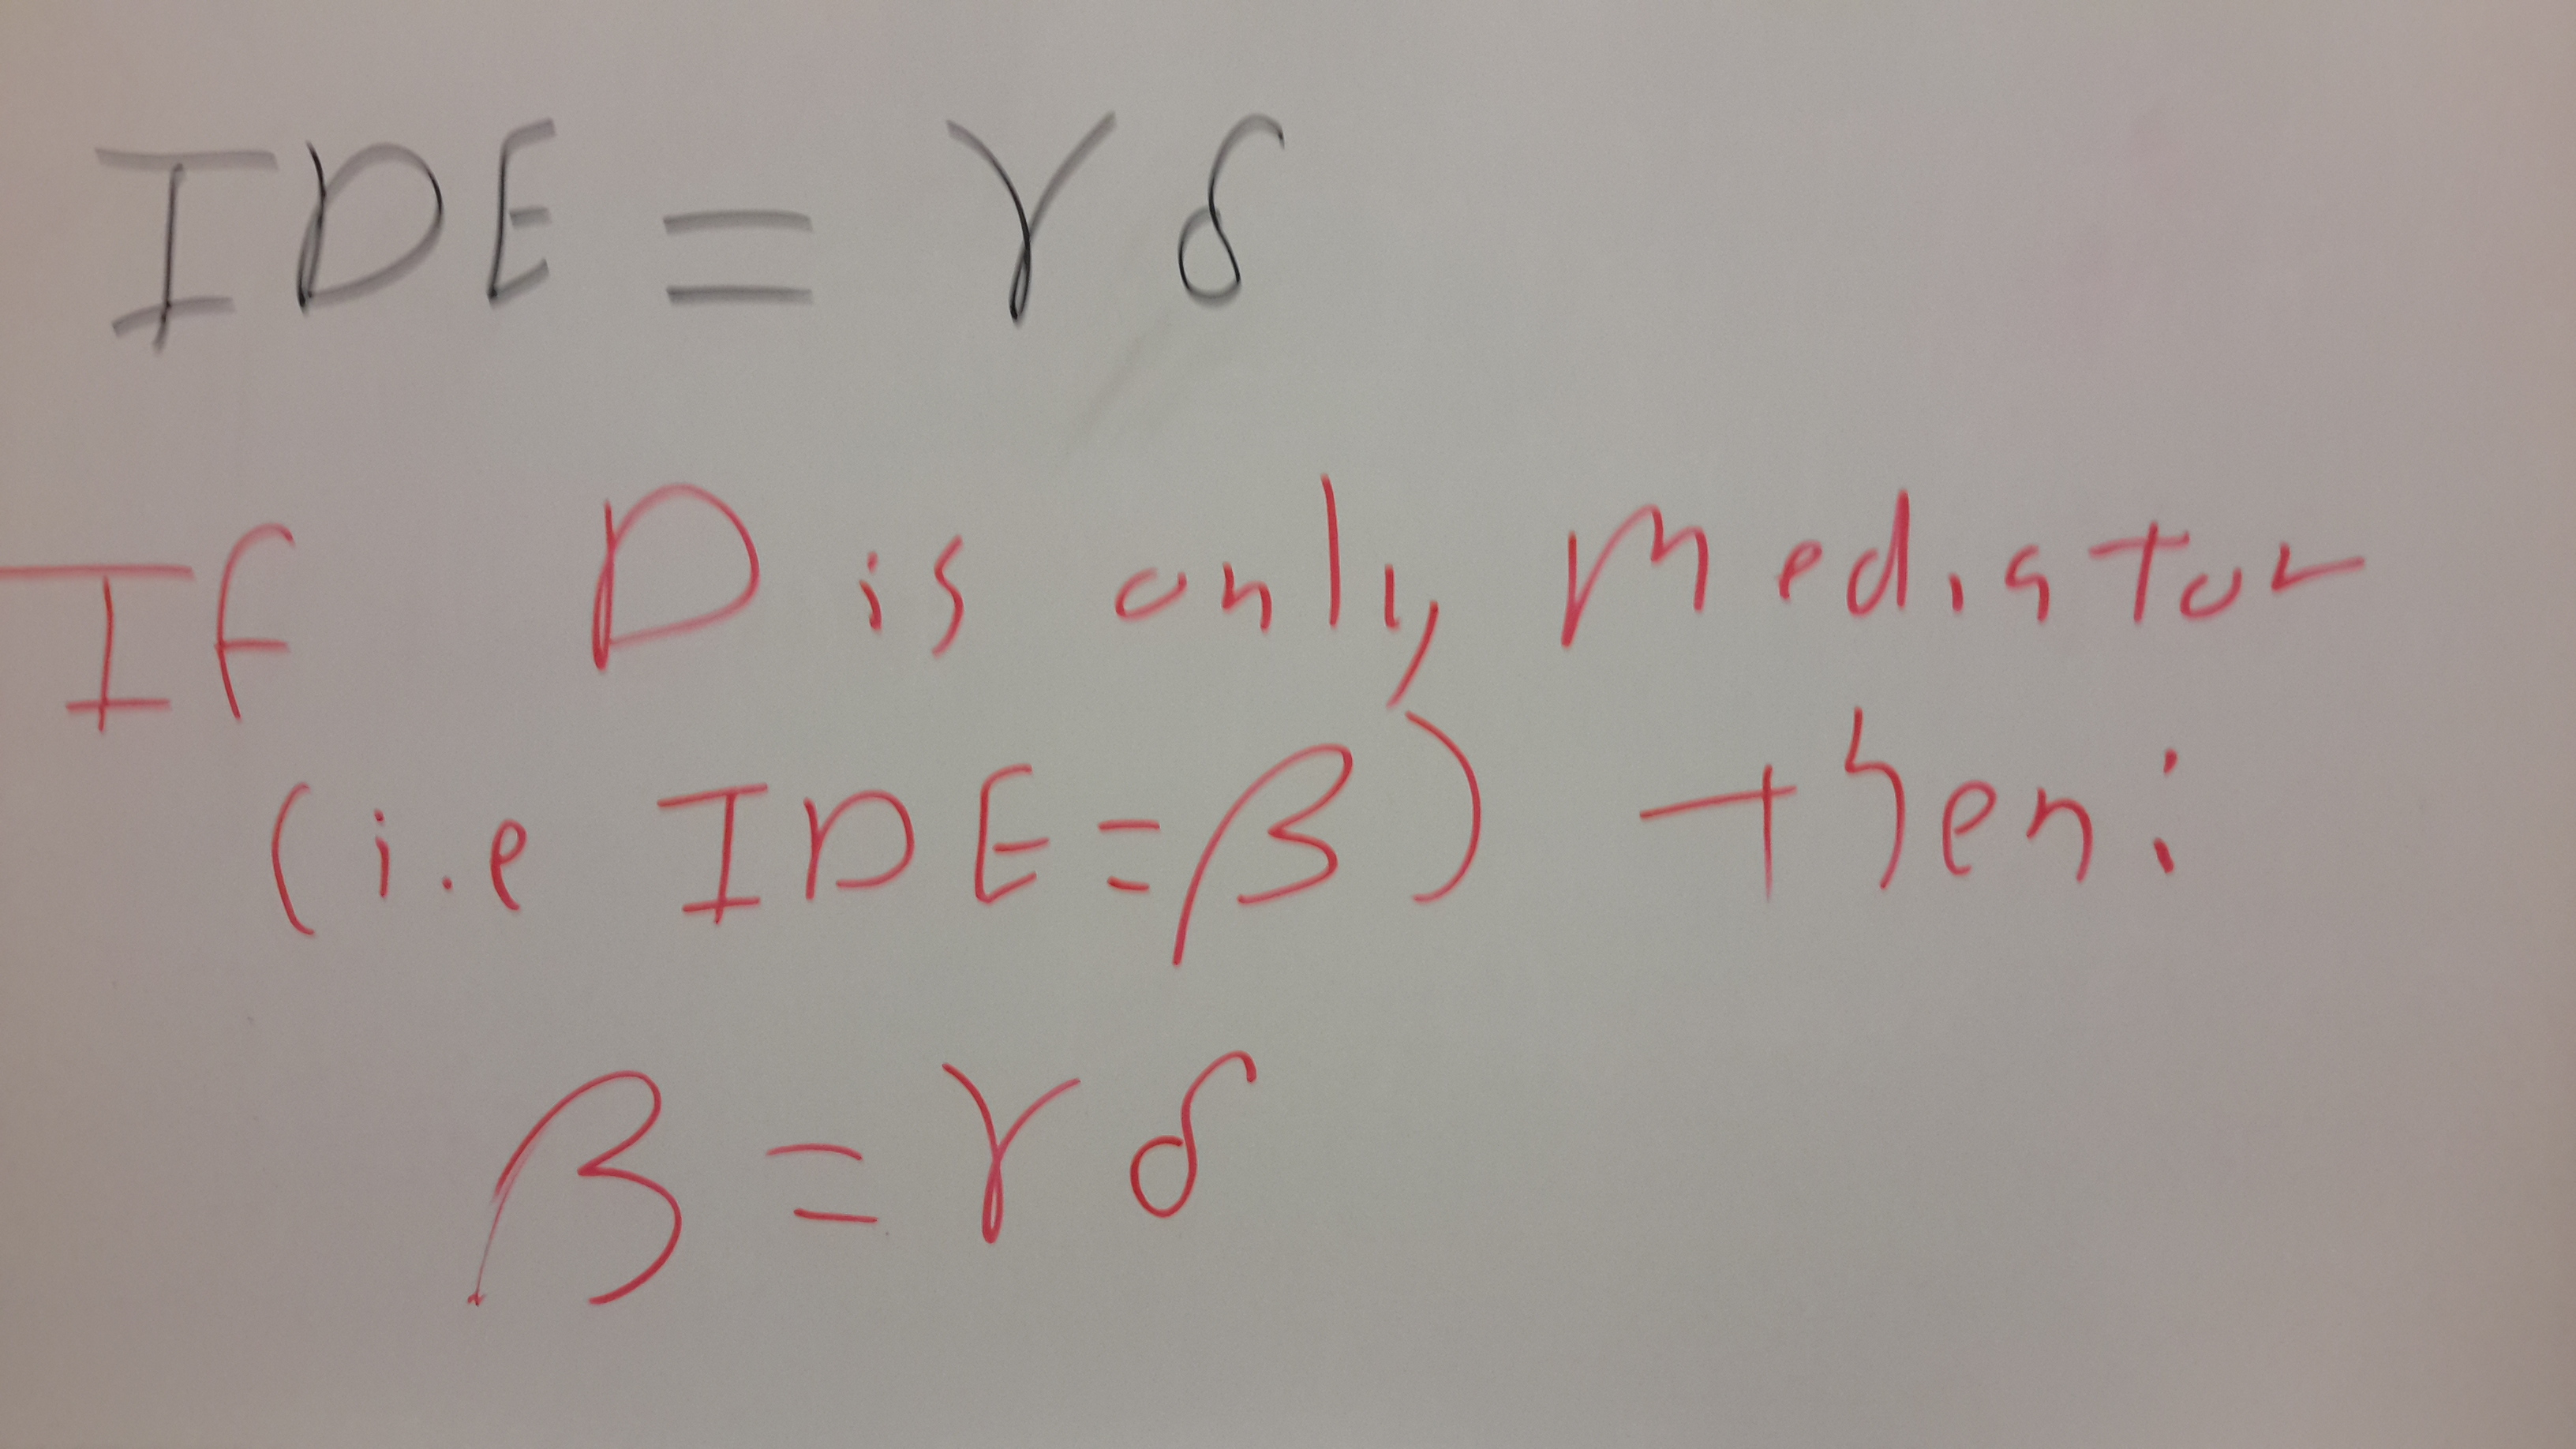 IDE = γ δ
If D is only Mediator
(i.e IDE=β) then:
β = γ δ